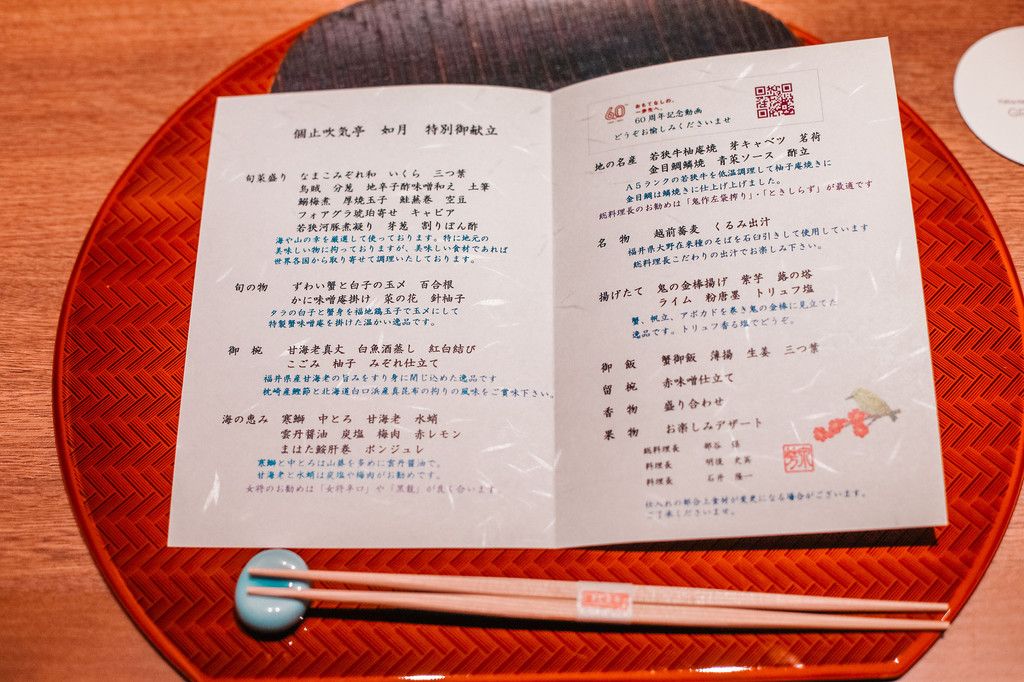 個止吹気亭 如月 特別御献立
旬菜盛り なまこみぞれ和 いくら 三つ葉
烏賊 分葱 地辛子酢味噌和え 土筆
鰯梅煮 厚焼玉子 鮭蕪巻 空豆
フォアグラ琥珀寄せ キャビア
若狭河豚煮凝り 芽葱 割りぽん酢
海や山の幸を厳選して使っております。特に地元の
美味しい物に拘っておりますが、美味しい食材であれば
世界各国から取り寄せて調理いたしております。
旬の物 ずわい蟹と白子の玉〆 百合根
かに味噌庵掛け 菜の花 針柚子
タラの白子と蟹身を福地鶏玉子で玉〆にして
特製蟹味噌庵を掛けた温かい逸品です。
御椀 甘海老真丈 白魚酒蒸し 紅白結び
こごみ 柚子 みぞれ仕立て
福井県産甘海老の旨みをすり身に閉じ込めた逸品です
枕崎産鰹節と北海道白口浜産真昆布の拘りの風味をご賞味下さい。
海の恵み 寒鰤 中とろ 甘海老 水蛸
雲丹醤油 炭塩 梅肉 赤レモン
まはた鮟肝巻 ポンジュレ
寒鰤と中とろは山葵を多めに雲丹醤油で。
甘海老と水蛸は炭塩や梅肉がお勧めです。
女将のお勧めは「女将辛口」や「黒龍」が良く合います
60 おもてなしの、
一歩先へ。
60周年記念動画
どうぞお愉しみくださいませ
地の名産 若狭牛柚庵焼 芽キャベツ 茗荷
金目鯛鱗焼 青菜ソース 酢立
A5ランクの若狭牛を低温調理して柚子庵焼きに
金目鯛は鱗焼きに仕上げ上げました。
総料理長のお勧めは「鬼作左袋搾り」・「ときしらず」が最適です
名物 越前蕎麦 くるみ出汁
福井県大野在来種のそばを石臼引きして使用しています
総料理長こだわりの出汁でお楽しみ下さい。
揚げたて 鬼の金棒揚げ 紫芋 蕗の塔
ライム 粉唐墨 トリュフ塩
蟹、帆立、アボカドを巻き鬼の金棒に見立てた
逸品です。トリュフ香る塩でどうぞ。
御飯 蟹御飯 薄揚 生姜 三つ葉
留椀 赤味噌仕立て
香物 盛り合わせ
果物 お楽しみデザート
総料理長
料理長
料理長 石井 隆一
仕入れの都合上食材が変更になる場合がございます。
ご了承くださいませ。